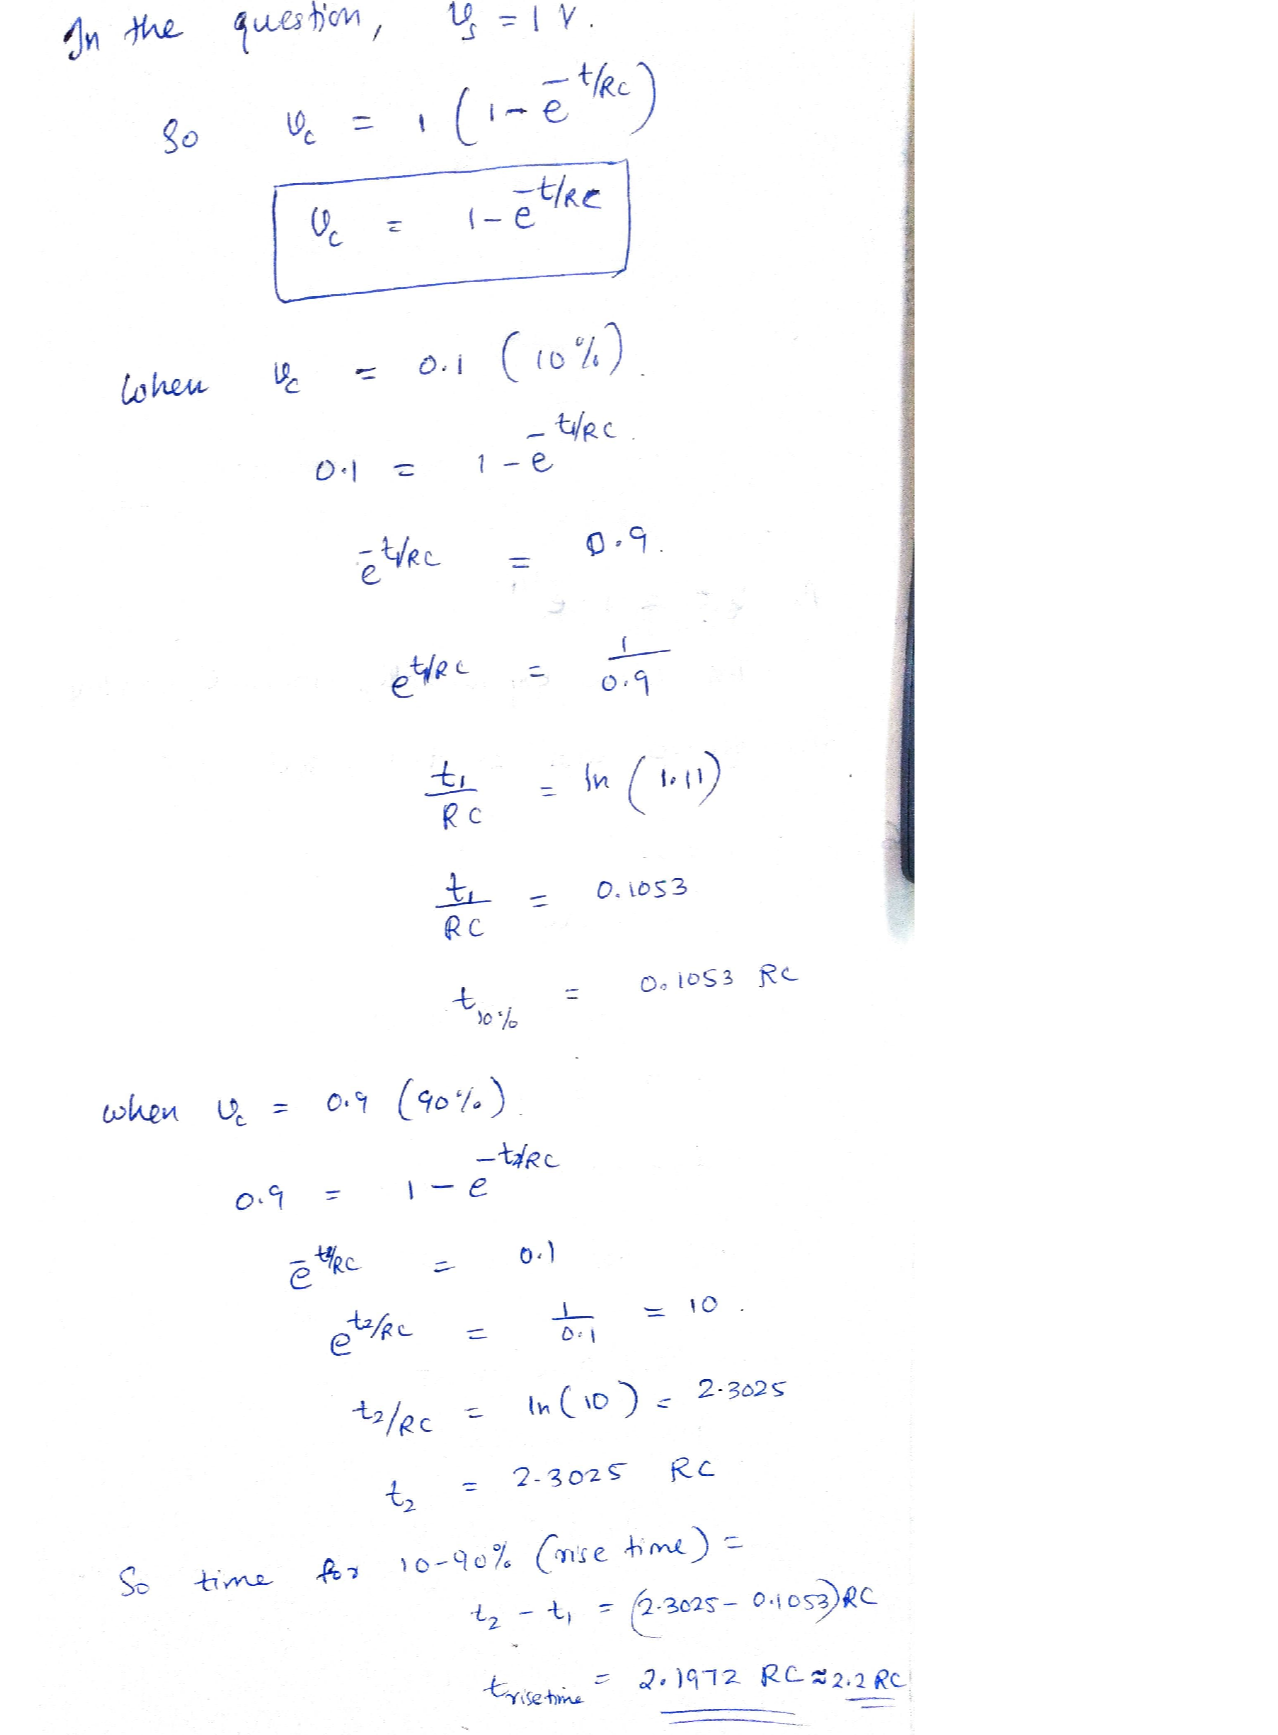 In the question, v_s = 1 V.
So v_c = 1 (1 - e^-t/RC)
v_c = 1 - e^-t/RC
When v_c = 0.1 (10%).
0.1 = 1 - e^-t1/RC.
e^-t1/RC = 0.9.
e^t1/RC = 1/0.9
t1/RC = ln (1.11)
t1/RC = 0.1053
t_10% = 0.1053 RC
when v_c = 0.9 (90%).
0.9 = 1 - e^-t2/RC
e^-t2/RC = 0.1
e^t2/RC = 1/0.1 = 10.
t2/RC = ln(10) = 2.3025
t2 = 2.3025 RC
So time for 10-90% (rise time) =
t2 - t1 = (2.3025 - 0.1053)RC
t_risetime = 2.1972 RC ≈ 2.2 RC